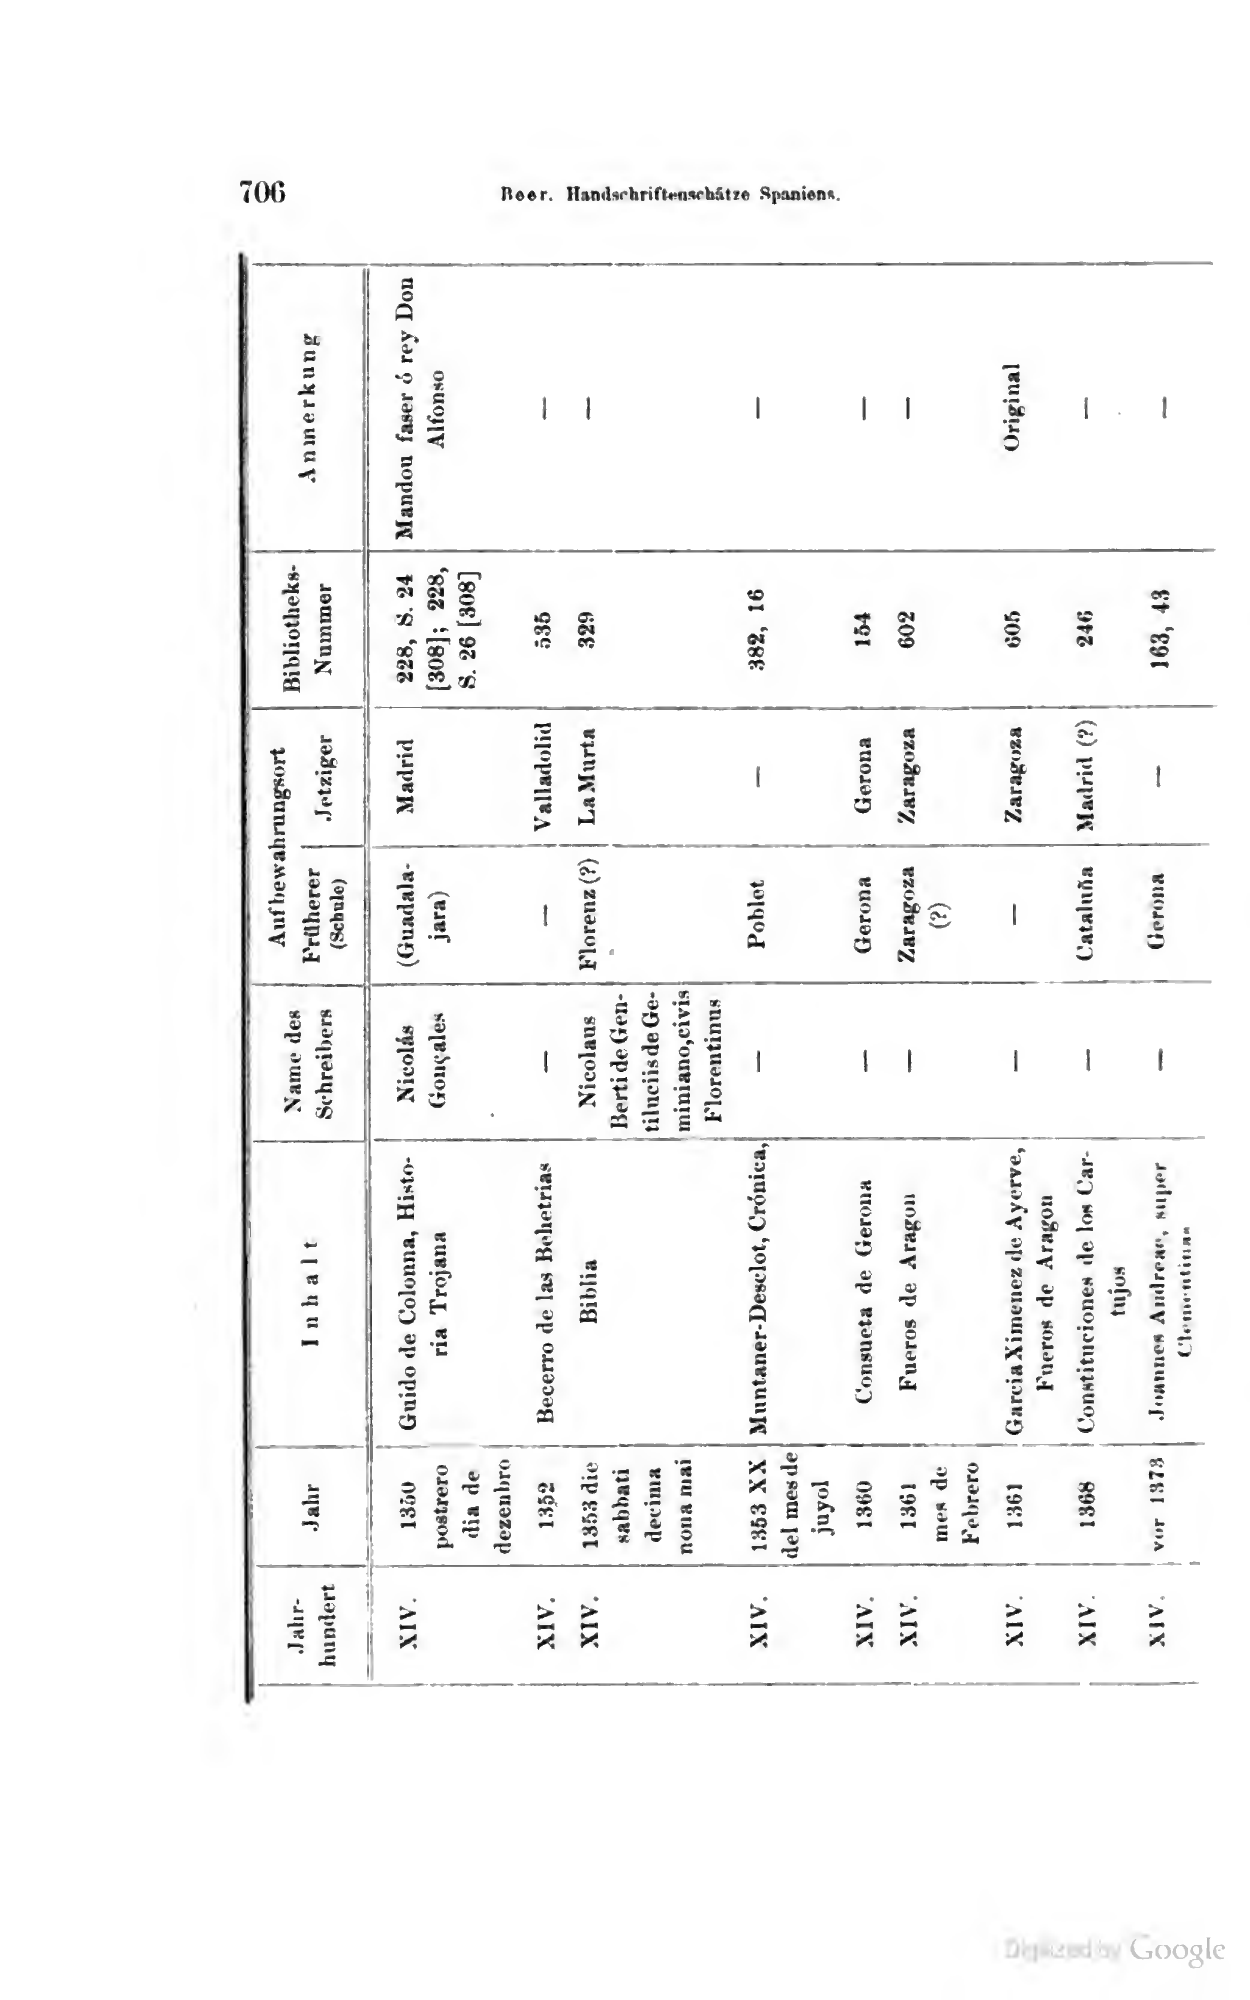 706
Beer. Handschriftenschätze Spaniens.
Jahr-
hundert
Jahr
Inhalt
Name des
Schreibers
Aufbewahrungsort
Früherer
(Schule)
Jetziger
Bibliotheks-
Nummer
Anmerkung
XIV.
1350
postrero
dia de
dezenbro
Guido de Colonna, Histo-
ria Trojana
Nicolás
Gonçales
(Guadala-
jara)
Madrid
228, S. 24
[308]; 228,
S. 26 [308]
Mandou faser ó rey Don
Alfonso
XIV.
1352
Becerro de las Behetrias
—
—
Valladolid
535
—
XIV.
1353 die
sabbati
decima
nona mai
Biblia
Nicolaus
Berti de Gen-
tiluciis de Ge-
miniano, civis
Florentinus
Florenz (?)
La Murta
329
—
XIV.
1353 XX
del mes de
juyol
Muntaner-Desclot, Crónica,
—
Poblet
—
382, 16
—
XIV.
1360
Consueta de Gerona
—
Gerona
Gerona
154
—
XIV.
1361
mes de
Febrero
Fueros de Aragon
—
Zaragoza
(?)
Zaragoza
602
—
XIV.
1361
Garcia Ximenez de Ayerve,
Fueros de Aragon
—
—
Zaragoza
605
Original
XIV.
1368
Constituciones de los Car-
tujos
—
Cataluña
Madrid (?)
246
—
XIV.
vor 1373
Joannes Andreae, super
Clementinas
—
Gerona
—
163, 43
—
Digitized by Google